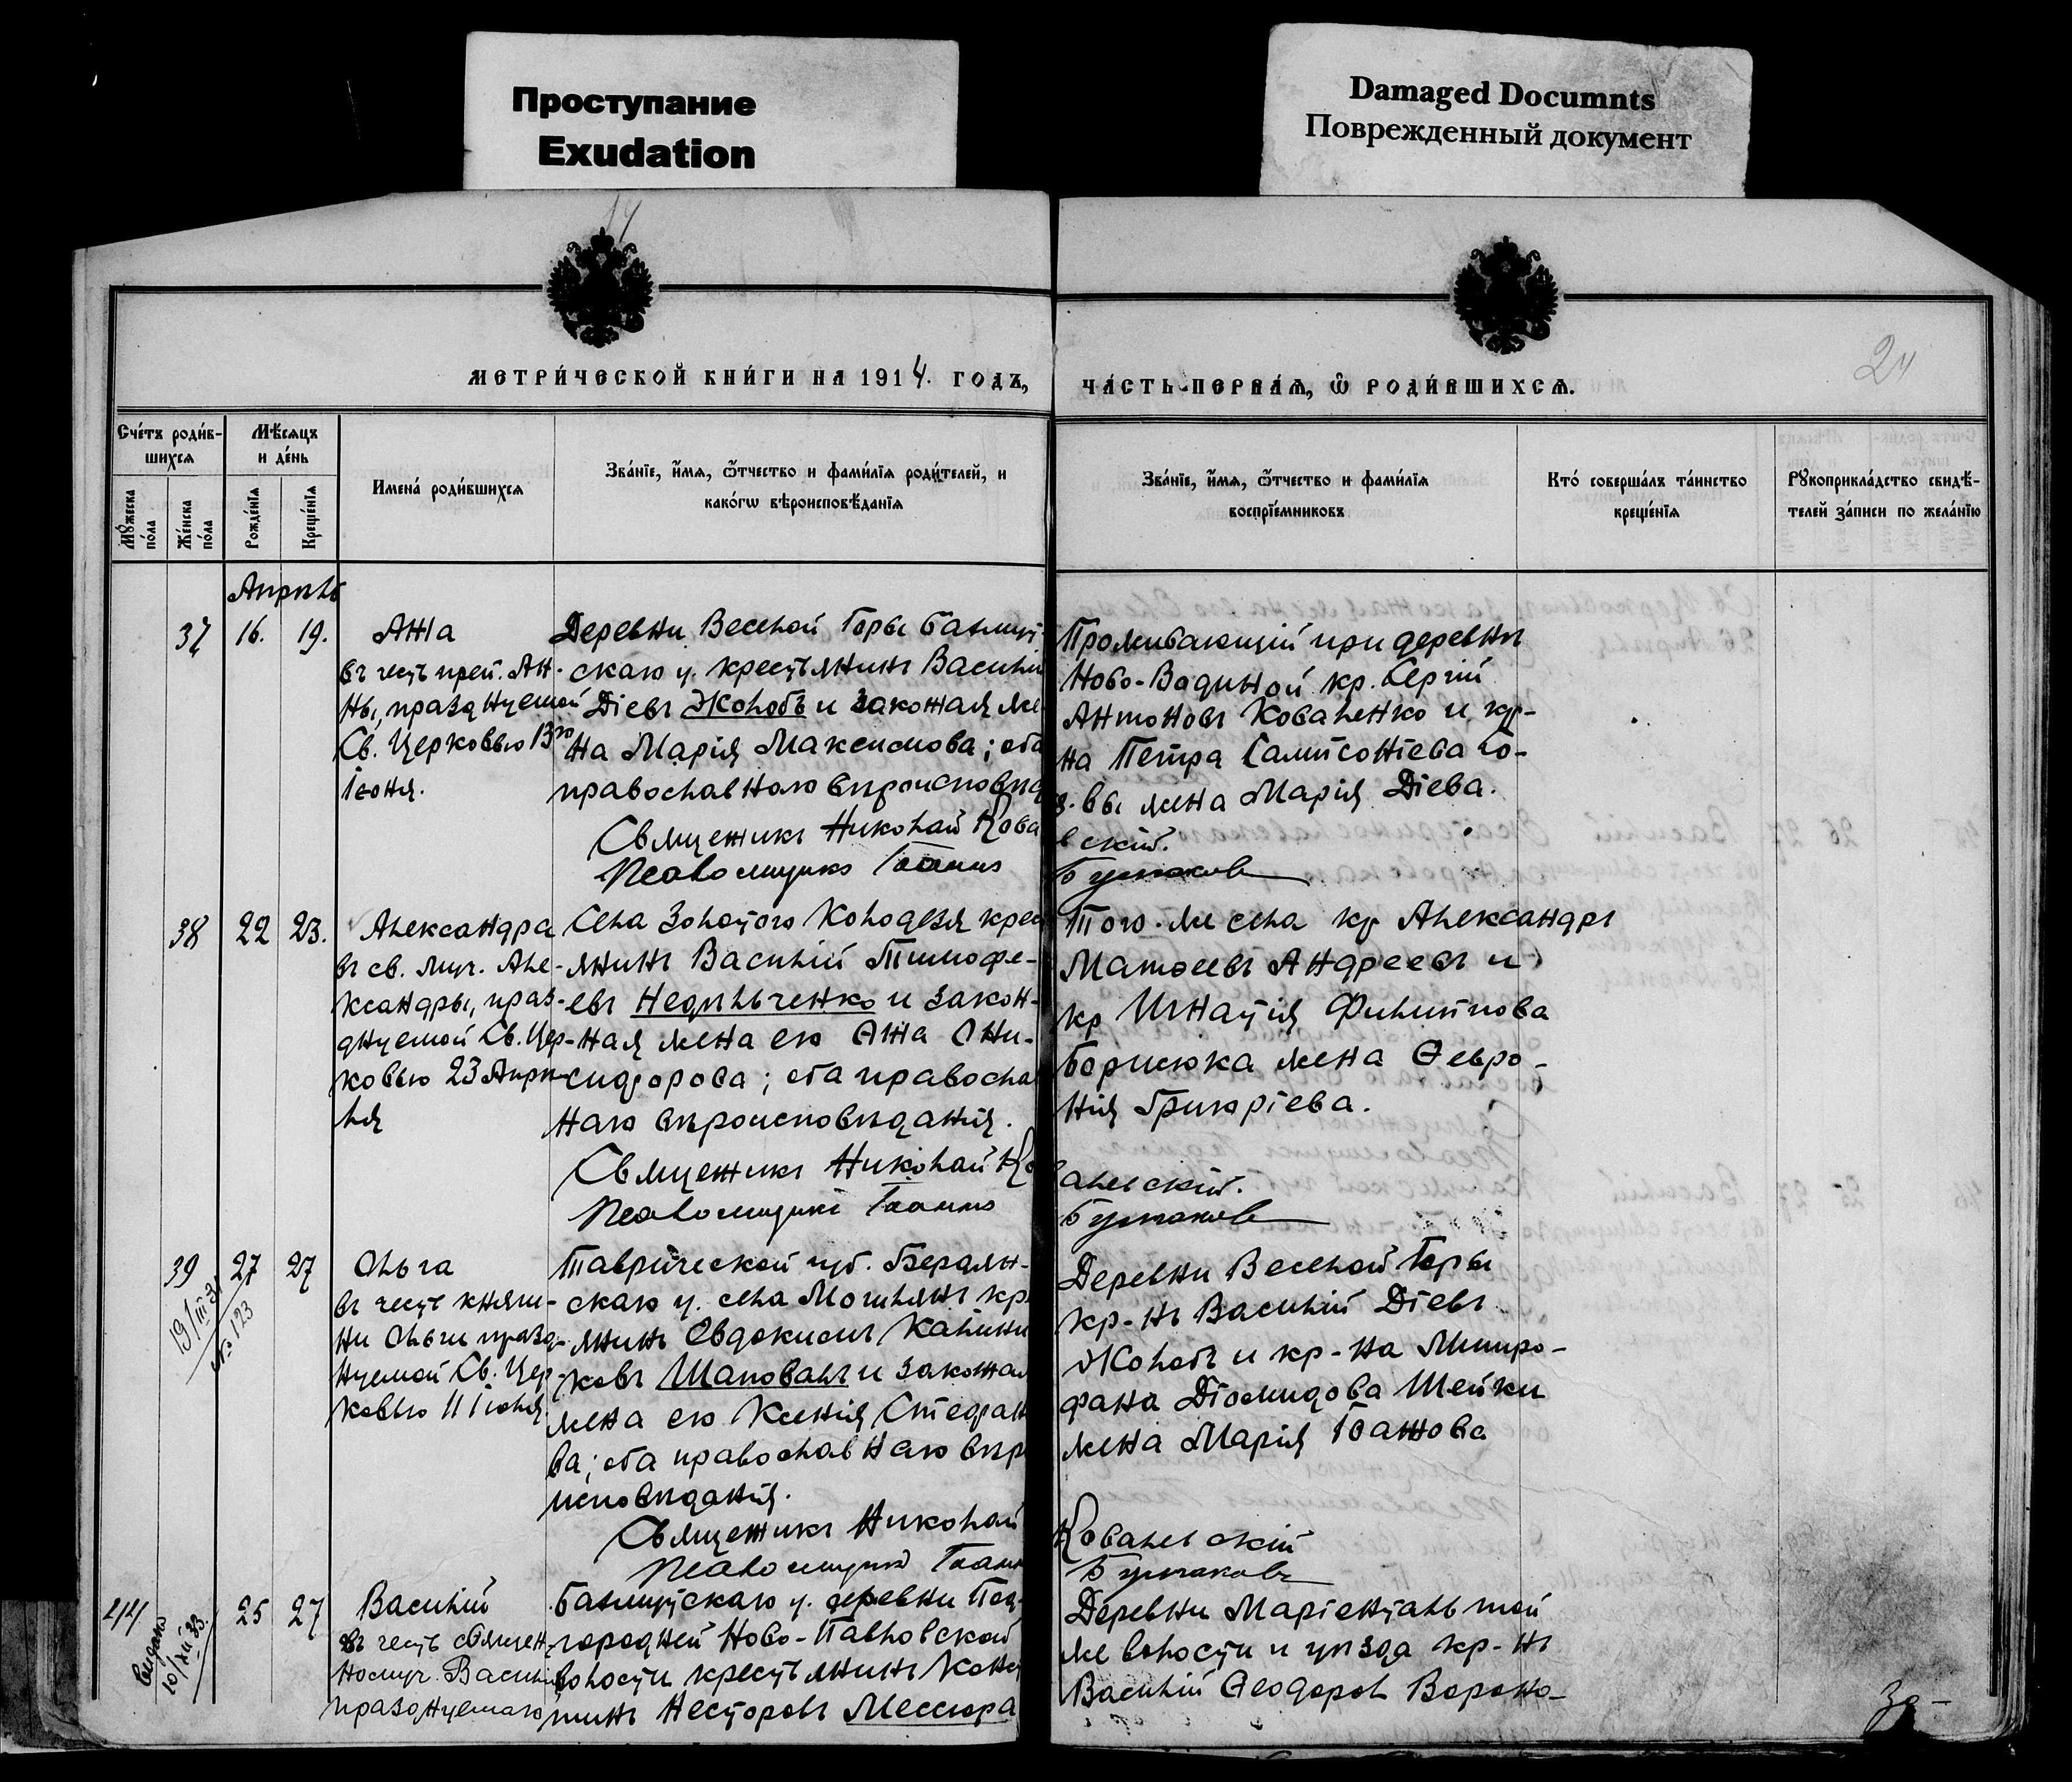 Проступание
Exudation
Damaged Documnts
Поврежденный документ
14
24
МЕТРИ́ЧЕСКОЙ КНИ́ГИ НА 1914. ГОДЪ,
ЧА́СТЬ ПЕРВА́Ѧ, Ѡ РОДИ́ВШИХСѦ.
Сче́тъ роди́в-
шихсѧ
Мѣ́сѧцъ
и де́нь
Имена́ роди́вшихсѧ
Зва́нїе, и́мѧ, ѻ́тчество и фами́лїѧ роди́телей, и
како́гѡ вѣроисповѣ́данїѧ
Зва́нїе, и́мѧ, ѻ́тчество и фами́лїѧ
воспрїе́мниковъ
Кто́ соверша́лъ та́инство
креще́нїѧ
Рꙋкоприкла́дство свидѣ́-
телей за́писи по жела́нїю
Мꙋ́жеска
по́ла
Же́нска
по́ла
Рожде́нїѧ
Креще́нїѧ
Апрѣль
37 16. 19.
Анна
въ честь преп. Ан-
ны, празднуемой
Св. Церковью 13го
Іюня.
Деревни Веселой Горы Бахмут-
скаго у. крестьянинъ Василій
Діевъ Жолобъ и законная же
на Марія Максимова; оба
православнаго вѣроисповѣд
Проживающій при деревнѣ
Ново-Водяной кр. Сергій
Антоновъ Коваленко и кр-
на Петра Сампсоніева Го-
вы жена Марія Діева.
Священникъ Николай Ковалевскій.
Псаломщикъ Іоаннъ Бушаковъ
38 22 23.
Александра
въ св. муч. Але-
ксандры, праз-
днуемой Св. Цер-
ковью 23 Апрѣ-
ля
Села Золотого Колодезя крес
янинъ Василій Тимофе-
евъ Недѣльченко и закон-
ная жена его Анна Они-
сидорова; оба правосла
наго вѣроисповѣданія.
Того-же села кр Александръ
Матѳеевъ Андреевъ и
кр Игнатія Филиппова
Борисюка жена Февро-
нія Григоріева.
Священникъ Николай Ковалевскій.
Псаломщикъ Іоаннъ Бушаковъ
39 27 27
19/III 31
№ 123
Ольга
въ честь княги-
ни Ольги празд-
нуемой Св. Цер-
ковью 11 Іюля
Таврической губ. Бердян-
скаго у. села Могилянъ кр
янинъ Евдокимъ Калини
ковъ Шаповалъ и законная
жена его Ксенія Стефан
ва; оба православнаго вѣр
исповѣданія.
Деревни Веселой Горы
кр-нъ Василій Діевъ
Жолобъ и кр-на Митро-
фана Діомидова Шейки
жена Марія Іоаннова
Священникъ Николай Ковалевскій
Псаломщикъ Іоаннъ Бушаковъ
44 25 27
Выдано
10/XII 33.
Василій
въ честь священ-
номуч. Василія
празднуемаго
Бахмутскаго у. деревни Под-
городней Ново-Павловской
волости крестьянинъ Конст
тинъ Несторовъ Мессюра
Деревни Маріенталь той
же волости и уѣзда кр-нъ
Василій Ѳеодоровъ Вороно-